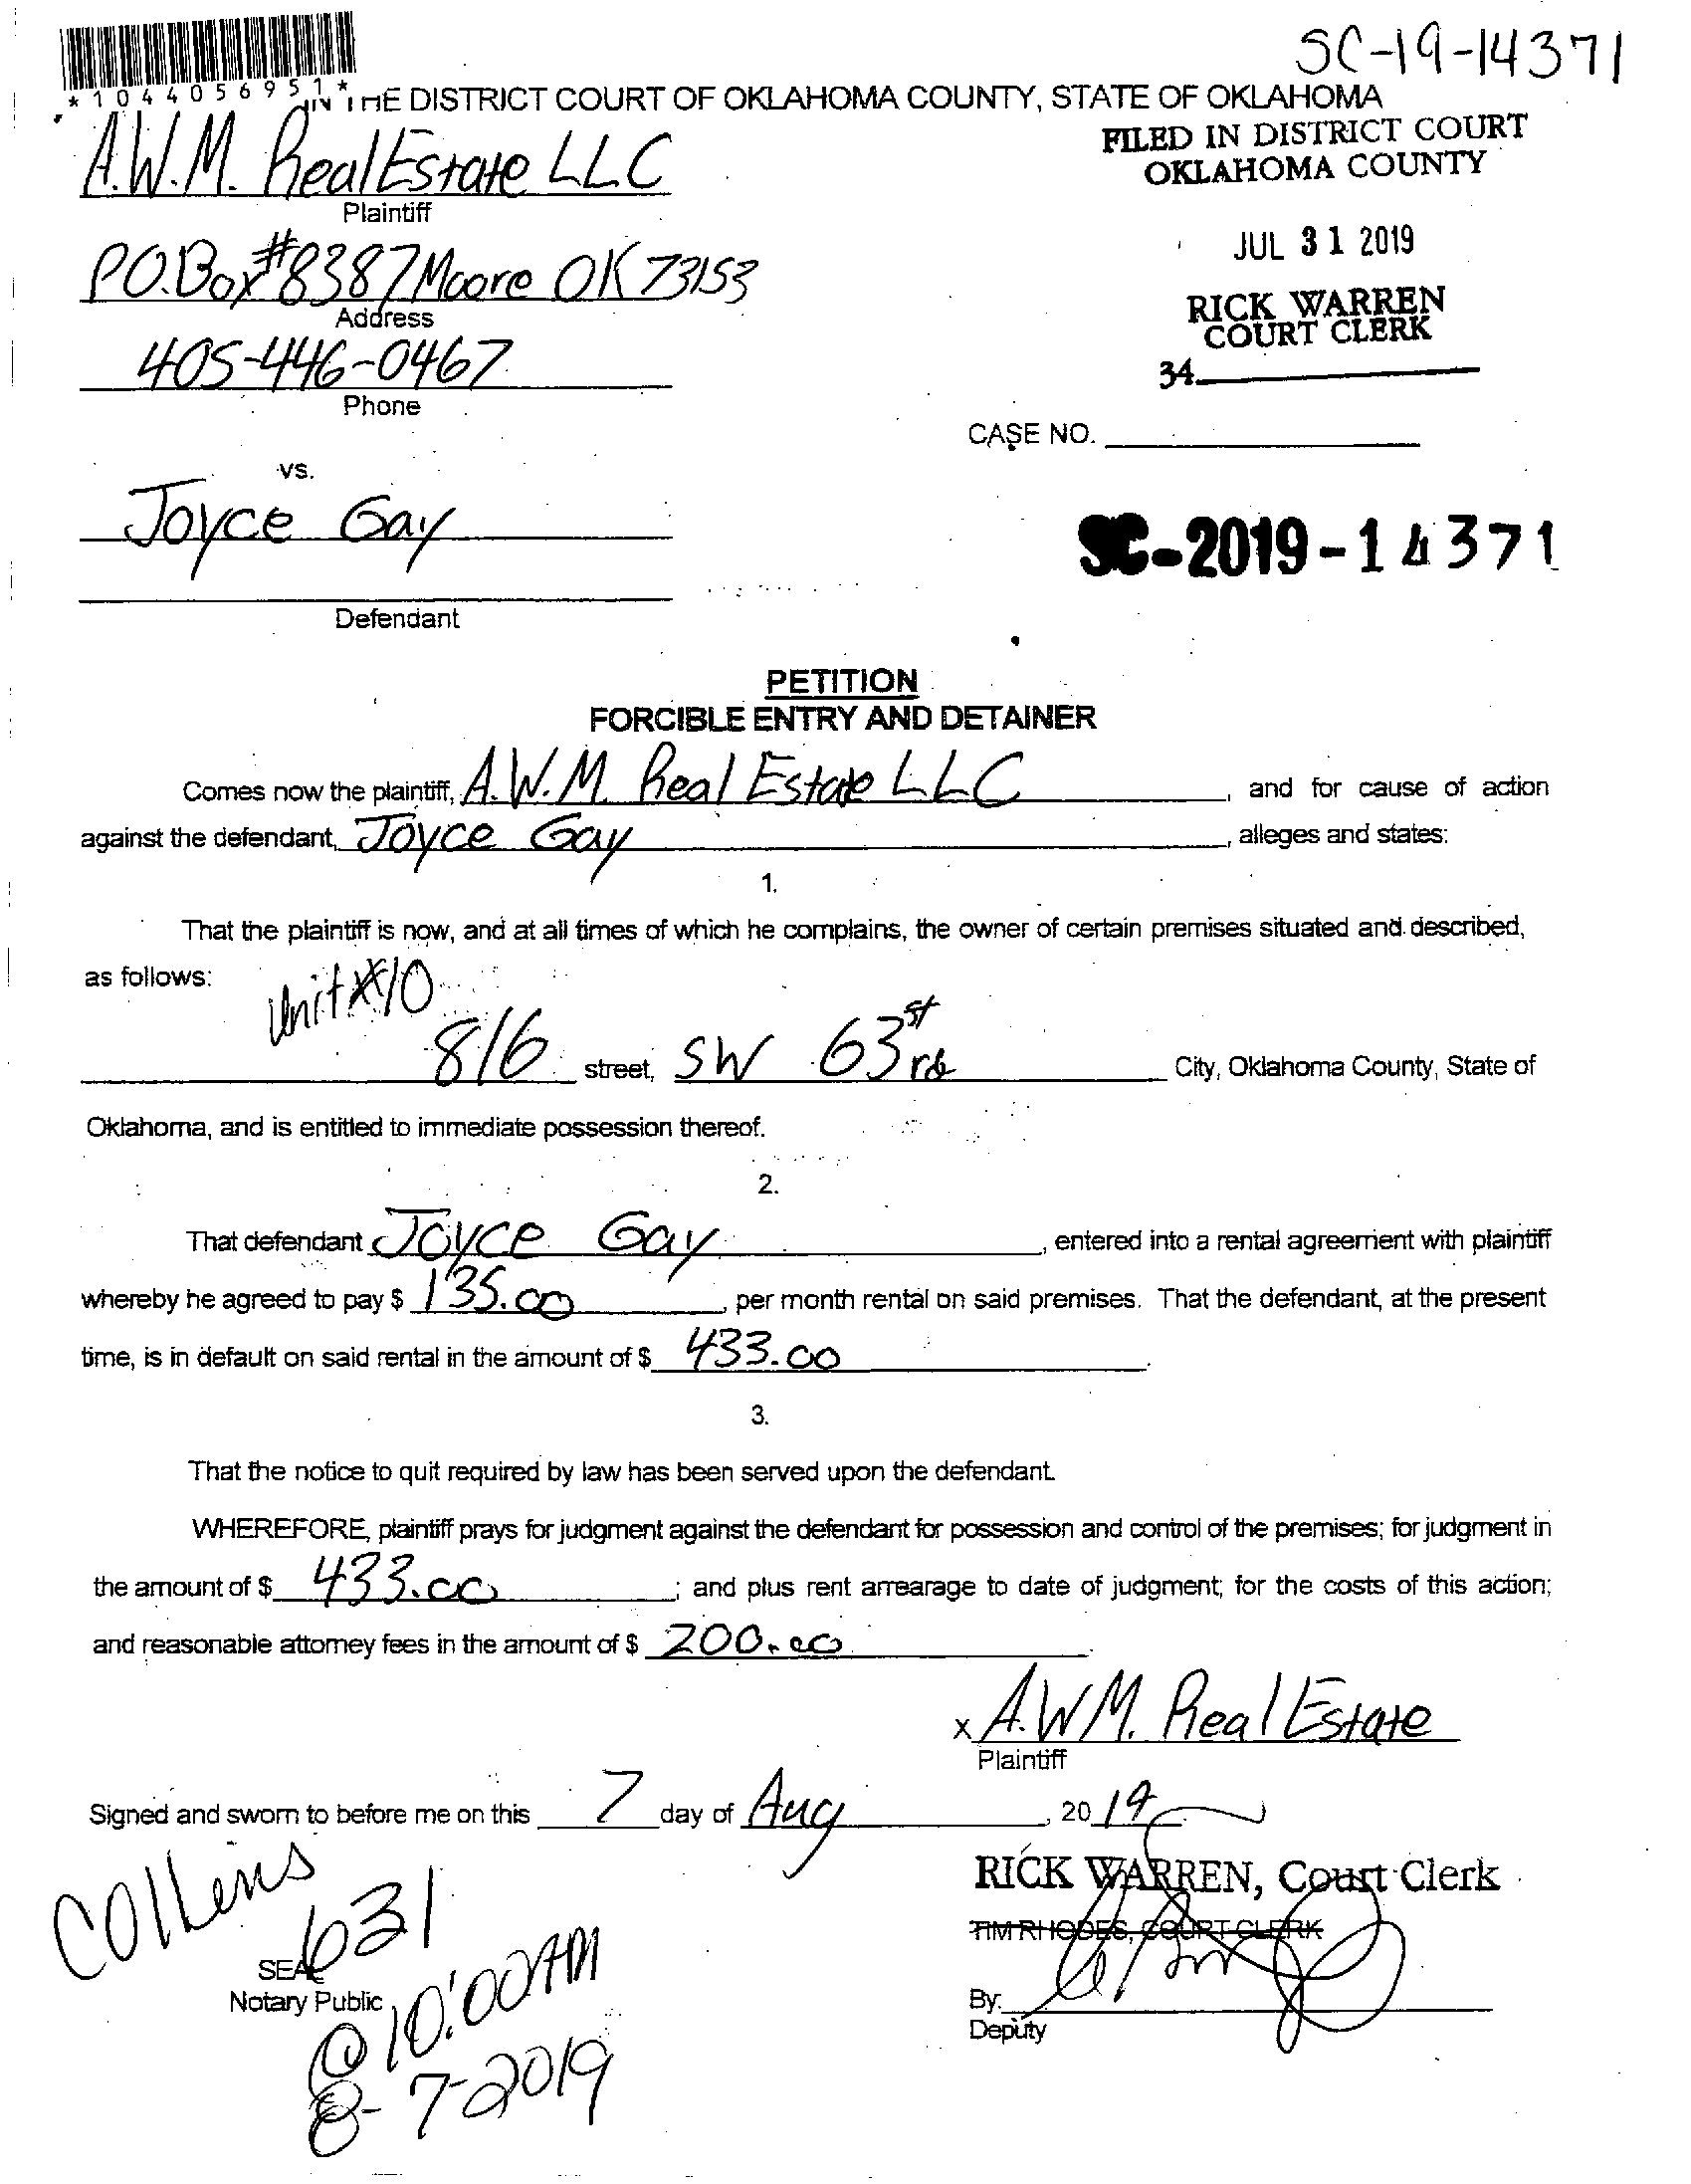 SC-19-14371
*1044056951*
IN THE DISTRICT COURT OF OKLAHOMA COUNTY, STATE OF OKLAHOMA
A.W.M. Real Estate LLC
Plaintiff
FILED IN DISTRICT COURT
OKLAHOMA COUNTY
JUL 31 2019
RICK WARREN
COURT CLERK
34
P.O.Box #8387 Moore OK 73153
Address
405-446-0467
Phone
CASE NO.
vs.
Joyce Gay
SC-2019-14371
Defendant
PETITION
FORCIBLE ENTRY AND DETAINER
Comes now the plaintiff, A.W.M. Real Estate LLC, and for cause of action
against the defendant, Joyce Gay, alleges and states:
1.
That the plaintiff is now, and at all times of which he complains, the owner of certain premises situated and described,
as follows:
Unit #10
816 street, SW 63rd st City, Oklahoma County, State of
Oklahoma, and is entitled to immediate possession thereof.
2.
That defendant Joyce Gay, entered into a rental agreement with plaintiff
whereby he agreed to pay $ 135.00, per month rental on said premises. That the defendant, at the present
time, is in default on said rental in the amount of $ 433.00.
3.
That the notice to quit required by law has been served upon the defendant.
WHEREFORE, plaintiff prays for judgment against the defendant for possession and control of the premises; for judgment in
the amount of $ 433.00; and plus rent arrearage to date of judgment; for the costs of this action;
and reasonable attorney fees in the amount of $ 200.00.
x A.W.M. Real Estate
Plaintiff
Signed and sworn to before me on this 7 day of Aug, 2019
RICK WARREN, Court Clerk
TIM RHODES, COURT CLERK
Collens
631
SEAL
Notary Public
By:
Deputy
@ 10:00AM
8-7-2019